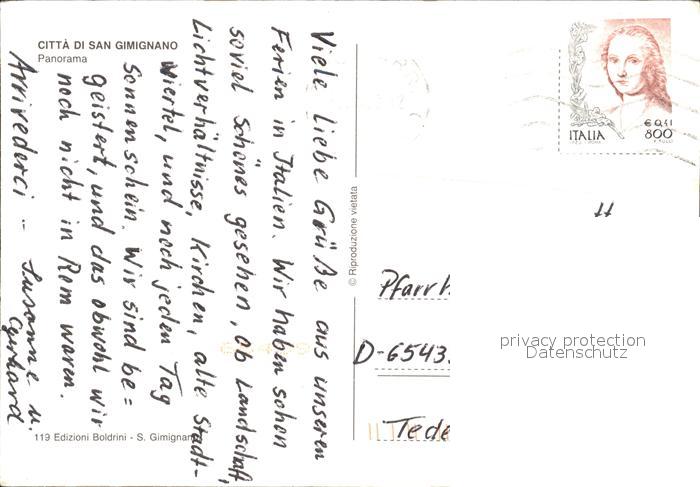 CITTÀ DI SAN GIMIGNANO
Panorama
Viele liebe Grüße aus unseren
Ferien in Italien. Wir habn schon
soviel schönes gesehen, ob Landschaft,
Lichtverhältnisse, Kirchen, alte Stadt-
viertel, und noch jeden Tag
Sonnenschein. Wir sind be=
geistert, und das obwohl wir
noch nicht in Rom waren.
Arrivederci -
Susanne u.
Gerhard
119 Edizioni Boldrini - S. Gimignano
© Riproduzione vietata
€ 0,41
ITALIA 800
11
Pfarr
D-6543
Tede
privacy protection
Datenschutz